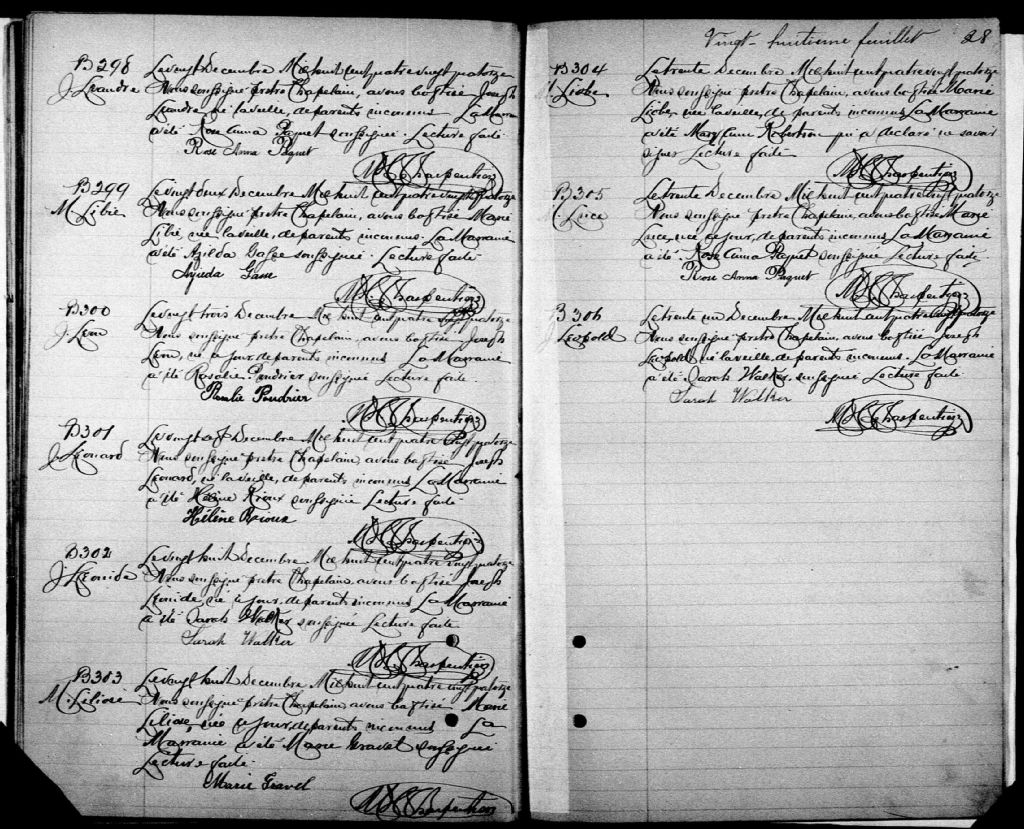 B298
J. Léandre
Le vingt Decembre Mil huit cent quatre vingt quatorze
Nous soussigné prêtre Chapelain, avons baptisé Joseph
Léandre, né la veille, de parents inconnus La Marraine
a été Rose Anna Paquet soussignée. Lecture faite.
Rose Anna Paquet
B299
M. Libie
Le vingt deux Decembre Mil huit cent quatre vingt quatorze
Nous soussigné prêtre Chapelain, avons baptisé Marie
née la veille, de parents inconnus. La Marraine
a été soussignée. Lecture faite
B300
J. Léon
Le vingt trois Decembre Mil huit cent quatre vingt quatorze
Nous soussigné prêtre Chapelain, avons baptisé Joseph
Léon, né ce jour, de parents inconnus La Marraine
a été Rosalie Poudrier soussignée Lecture faite
Poudrier
B301
J. Léonard
Le vingt Decembre Mil huit cent quatre vingt quatorze
Nous soussigné prêtre Chapelain avons baptisé Joseph
Léonard, né la veille, de parents inconnus La Marraine
a été Hélène Rioux soussignée Lecture faite
Hélène Rioux
B302
J. Léonide
Le vingt huit Decembre Mil huit cent quatre vingt quatorze
Nous soussigné prêtre Chapelain, avons baptisé Joseph
Léonide, né ce jour, de parents inconnus La Marraine
a été Sarah Walker soussignée Lecture faite
Sarah Walker
B303
M. Liliose
Le vingt huit Decembre Mil huit cent quatre vingt quatorze
Nous soussigné prêtre Chapelain, avons baptisé Marie
Liliose, née ce jour, de parents inconnus La
Marraine a été Marie Gravel soussignée
Lecture faite.
Marie Gravel
Vingt-huitième feuillet 28
B304
Le trente Decembre Mil huit cent quatre vingt quatorze
Nous soussigné prêtre Chapelain, avons baptisé Marie
née la veille, de parents inconnus La Marraine
a été Mary Anne Robertson qui a declaré ne savoir
signer Lecture faite
B305
M. Luce
Le trente Decembre Mil huit cent quatre vingt quatorze
Nous soussigné prêtre Chapelain, avons baptisé Marie
Luce, née ce jour, de parents inconnus La Marraine
a été Rose Anna Paquet soussignée Lecture faite
Rose Anna Paquet
B306
J. Léopold
Le trente un Decembre Mil huit cent quatre vingt quatorze
Nous soussigné prêtre Chapelain, avons baptisé Joseph
Léopold, né la veille, de parents inconnus. La Marraine
a été Sarah Walker, soussignée Lecture faite
Sarah Walker